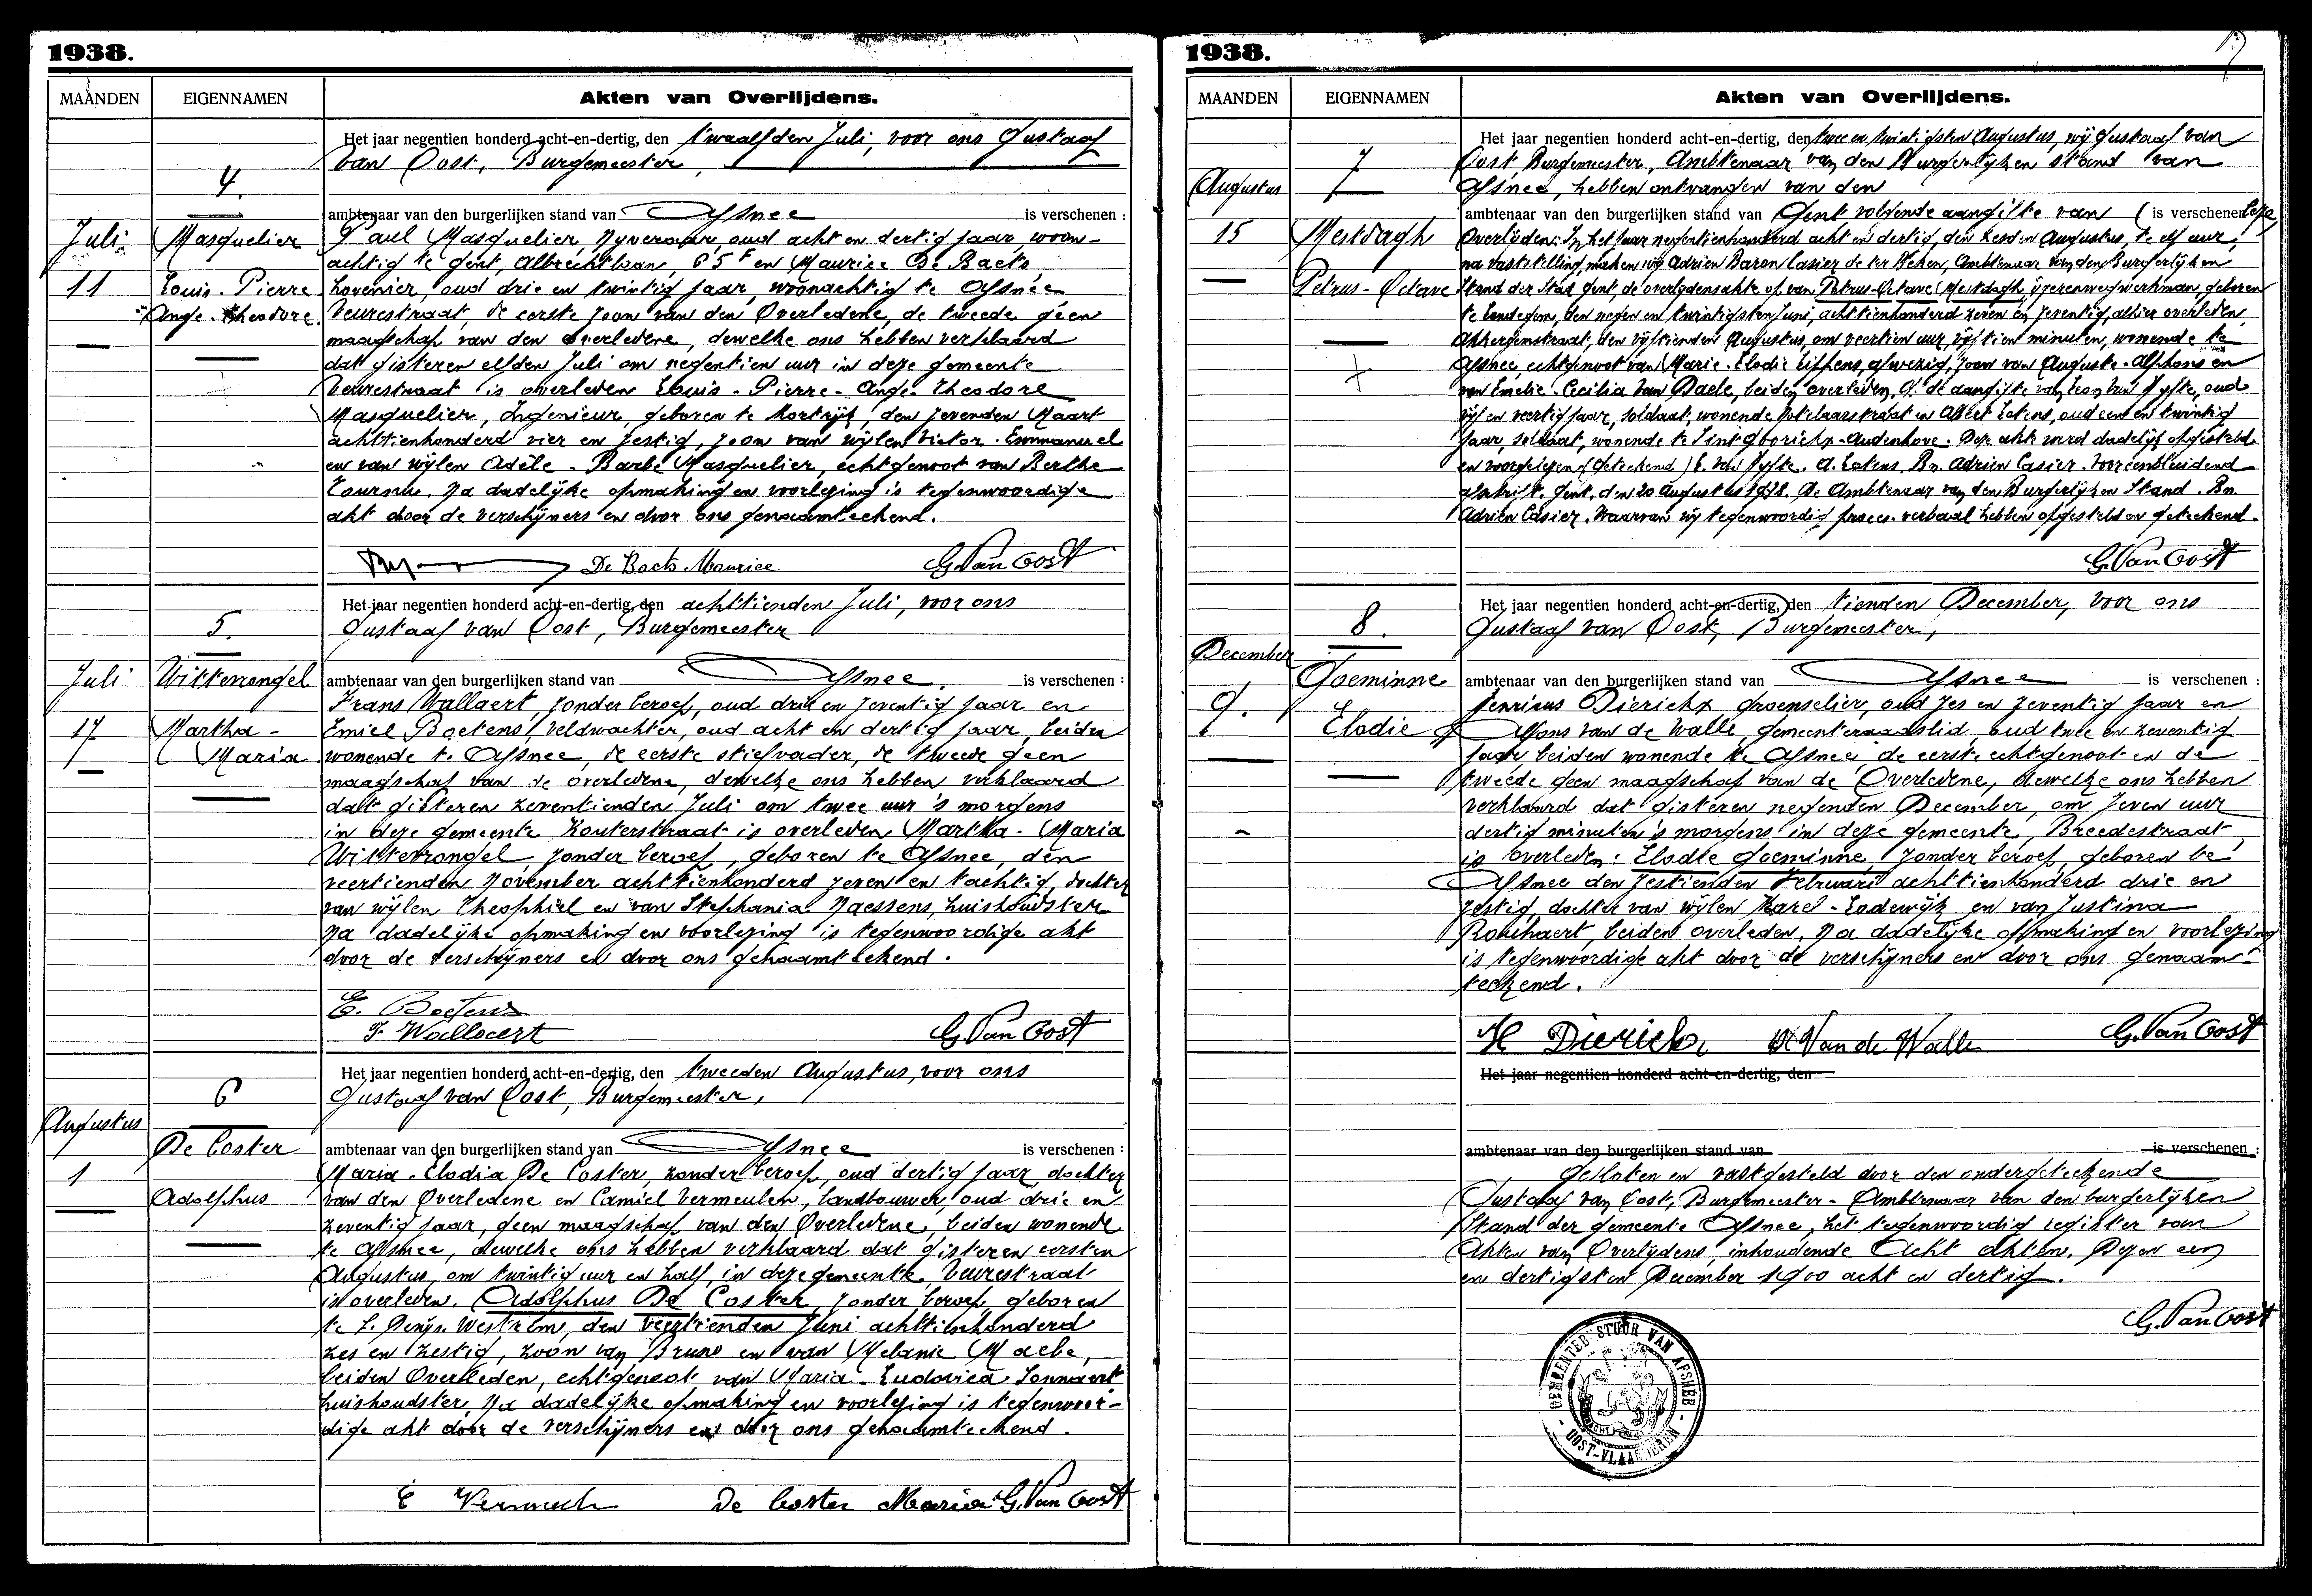 1938.
MAANDEN EIGENNAMEN Akten van Overlijdens.
4.
Juli
11
Masquelier
Louis-Pierre
Ange-Theodore
Het jaar negentien honderd acht-en-dertig, den twaalfden Juli, voor ons Gustaaf
Van Oost, Burgemeester,
ambtenaar van den burgerlijken stand van Afsnee is verschenen :
Paul Masquelier, Nyveraar, oud acht en dertig jaar, woon-
achtig te Gent, Albrechtlaan, 65 en Maurice De Baets,
hovenier, oud drie en twintig jaar, woonachtig te Afsnee
Veurestraat, de eerste zoon van den Overledene, de tweede geen
maagschap van den overledene, dewelke ons hebben verklaard
dat gisteren elfden Juli om negentien uur in deze gemeente
Veurestraat is overleden Louis-Pierre-Ange-Theodore
Masquelier, Ingenieur, geboren te Kortrijk, den zevenden Maart
achttienhonderd vier en zestig, zoon van wijlen Victor-Emmanuel
en van wijlen Adèle-Barbe Masquelier, echtgenoot van Berthe
Tournu. Na dadelijke opmaking en voorlezing is tegenwoordige
akt door de verschijners en door ons genaamteekend.
De Baets Maurice G. Van Oost
5.
Juli
17
Wittevrongel
Martha-
Maria
Het jaar negentien honderd acht-en-dertig, den achttienden Juli, voor ons
Gustaaf van Oost, Burgemeester
ambtenaar van den burgerlijken stand van Afsnee. is verschenen :
Frans Wallaert, zonder beroep, oud drie en zeventig jaar en
Emiel Boetens, Veldwachter, oud acht en dertig jaar, beiden
wonende te Afsnee, de eerste stiefvader, de tweede geen
maagschap van de overledene, dewelke ons hebben verklaard
dat gisteren zeventienden Juli om twee uur 's morgens
in deze gemeente Kouterstraat is overleden Martha-Maria
Wittevrongel zonder beroep, geboren te Afsnee, den
veertienden November achttienhonderd zeven en tachtig, dochter
van wijlen Theophiel en van Stephania Naessens, huishoudster
Na dadelijke opmaking en voorlezing is tegenwoordige akt
door de verschijners en door ons genaamteekend.
E. Boetens
F. Wallaert G. Van Oost
6
Augustus
1
De Coster
Adolphus
Het jaar negentien honderd acht-en-dertig, den tweeden Augustus, voor ons
Gustaaf van Oost, Burgemeester,
ambtenaar van den burgerlijken stand van Afsnee is verschenen :
Maria-Elodia De Coster, zonder beroep, oud dertig jaar, dochter
van den Overledene en Camiel Vermeulen, landbouwer, oud drie en
zeventig jaar, geen maagschap van den Overledene, beiden wonende
te Afsnee, dewelke ons hebben verklaard dat gisteren eersten
Augustus, om twintig uur en half, in deze gemeente, Veurestraat
is overleden. Adolphus De Coster, zonder beroep, geboren
te S. Denijs-Westrem, den veertienden Juni achttienhonderd
zes en zestig, zoon van Bruno en van Melanie Maebe,
beiden Overleden, echtgenoot van Maria-Ludovica Lonnaert
huishoudster, Na dadelijke opmaking en voorlezing is tegenwoor-
dige akt door de verschijners en door ons genaamteekend.
De Coster Maria G. Van Oost
1938.
MAANDEN EIGENNAMEN Akten van Overlijdens.
7
Augustus
15
Mestdagh
Petrus-Octave
Het jaar negentien honderd acht-en-dertig, den twee en twintigsten Augustus, wij Gustaaf van
Oost, Burgemeester, Ambtenaar van den Burgerlijken stand van
Afsnee, hebben ontvangen van den
ambtenaar van den burgerlijken stand van Gent volgende aangifte van ( is verschenen
Overlijden: In het jaar negentienhonderd acht en dertig, den zesden Augustus, te elf uur,
na vaststelling, maken wij Adrien Baron Casier de ter Beken, Ambtenaar van den Burgerlijken
Stand der Stad Gent, de overlijdensakte op van Petrus-Octave Mestdagh, ijzerenwegwerkman, geboren
te Landegem, den negen en twintigsten Juni, achttienhonderd zeven en zeventig, alhier overleden,
Akkergemstraat, den vijftienden Augustus, om veertien uur, vijftien minuten, wonende te
Afsnee, echtgenoot van Marie-Elodie Eiffens, afwezig, zoon van Auguste-Alphons en
van Emelie-Cecilia Van Daele, beiden overleden. Op de aangifte van Leon Van Hyfte, oud
vijf en veertig jaar, soldaat, wonende en Albert Eekens, oud een en twintig
jaar, soldaat, wonende te Sint Goorickx-Audenhove. Deze akte werd dadelijk opgesteld
en voorgelezen (geteekend) E. Van Hyfte. A. Eekens, Bn. Adrien Casier. Voor eensluidend
afschrift. Gent, den 20 Augustus 1938. De Ambtenaar van den Burgerlijken Stand. Bn.
Adrien Casier. Waarvan wij tegenwoordig proces-verbaal hebben opgesteld en geteekend.
G. Van Oost
8.
December
9.
Goeminne
Elodie
Het jaar negentien honderd acht-en-dertig, den tienden December, voor ons
Gustaaf van Oost, Burgemeester,
ambtenaar van den burgerlijken stand van Afsnee is verschenen :
Henricus Dierickx groenselier, oud zes en zeventig jaar en
Alfons van de Walle, gemeenteraadslid, oud twee en zeventig
jaar beiden wonende te Afsnee, de eerste echtgenoot en de
tweede geen maagschap van de Overledene, dewelke ons hebben
verklaard dat gisteren negenden December, om zeven uur
dertig minuten 's morgens in deze gemeente, Breedestraat,
is overleden: Elodie Goeminne, zonder beroep, geboren te
Afsnee den zestienden Februari achttienhonderd drie en
zestig, dochter van wijlen Karel-Lodewijk en van Justina
Robihaert, beiden overleden. Na dadelijke opmaking en voorlezing
is tegenwoordige akt door de verschijners en door ons genaam-
teekend.
H Dierickx A Van de Walle G. Van Oost
Het jaar negentien honderd acht-en-dertig, den
ambtenaar van den burgerlijken stand van is verschenen :
Gesloten en vastgesteld door den ondergeteekende
Gustaaf van Oost, Burgemeester-Ambtenaar van den burgerlijken
Stand der gemeente Afsnee, het tegenwoordig register van
Akten van Overlijdens, inhoudende Acht akten, Dezen een
en dertigsten December 1900 acht en dertig.
G. Van Oost
GEMEENTEBESTUUR VAN AFSNEE
- OOST-VLAANDEREN -